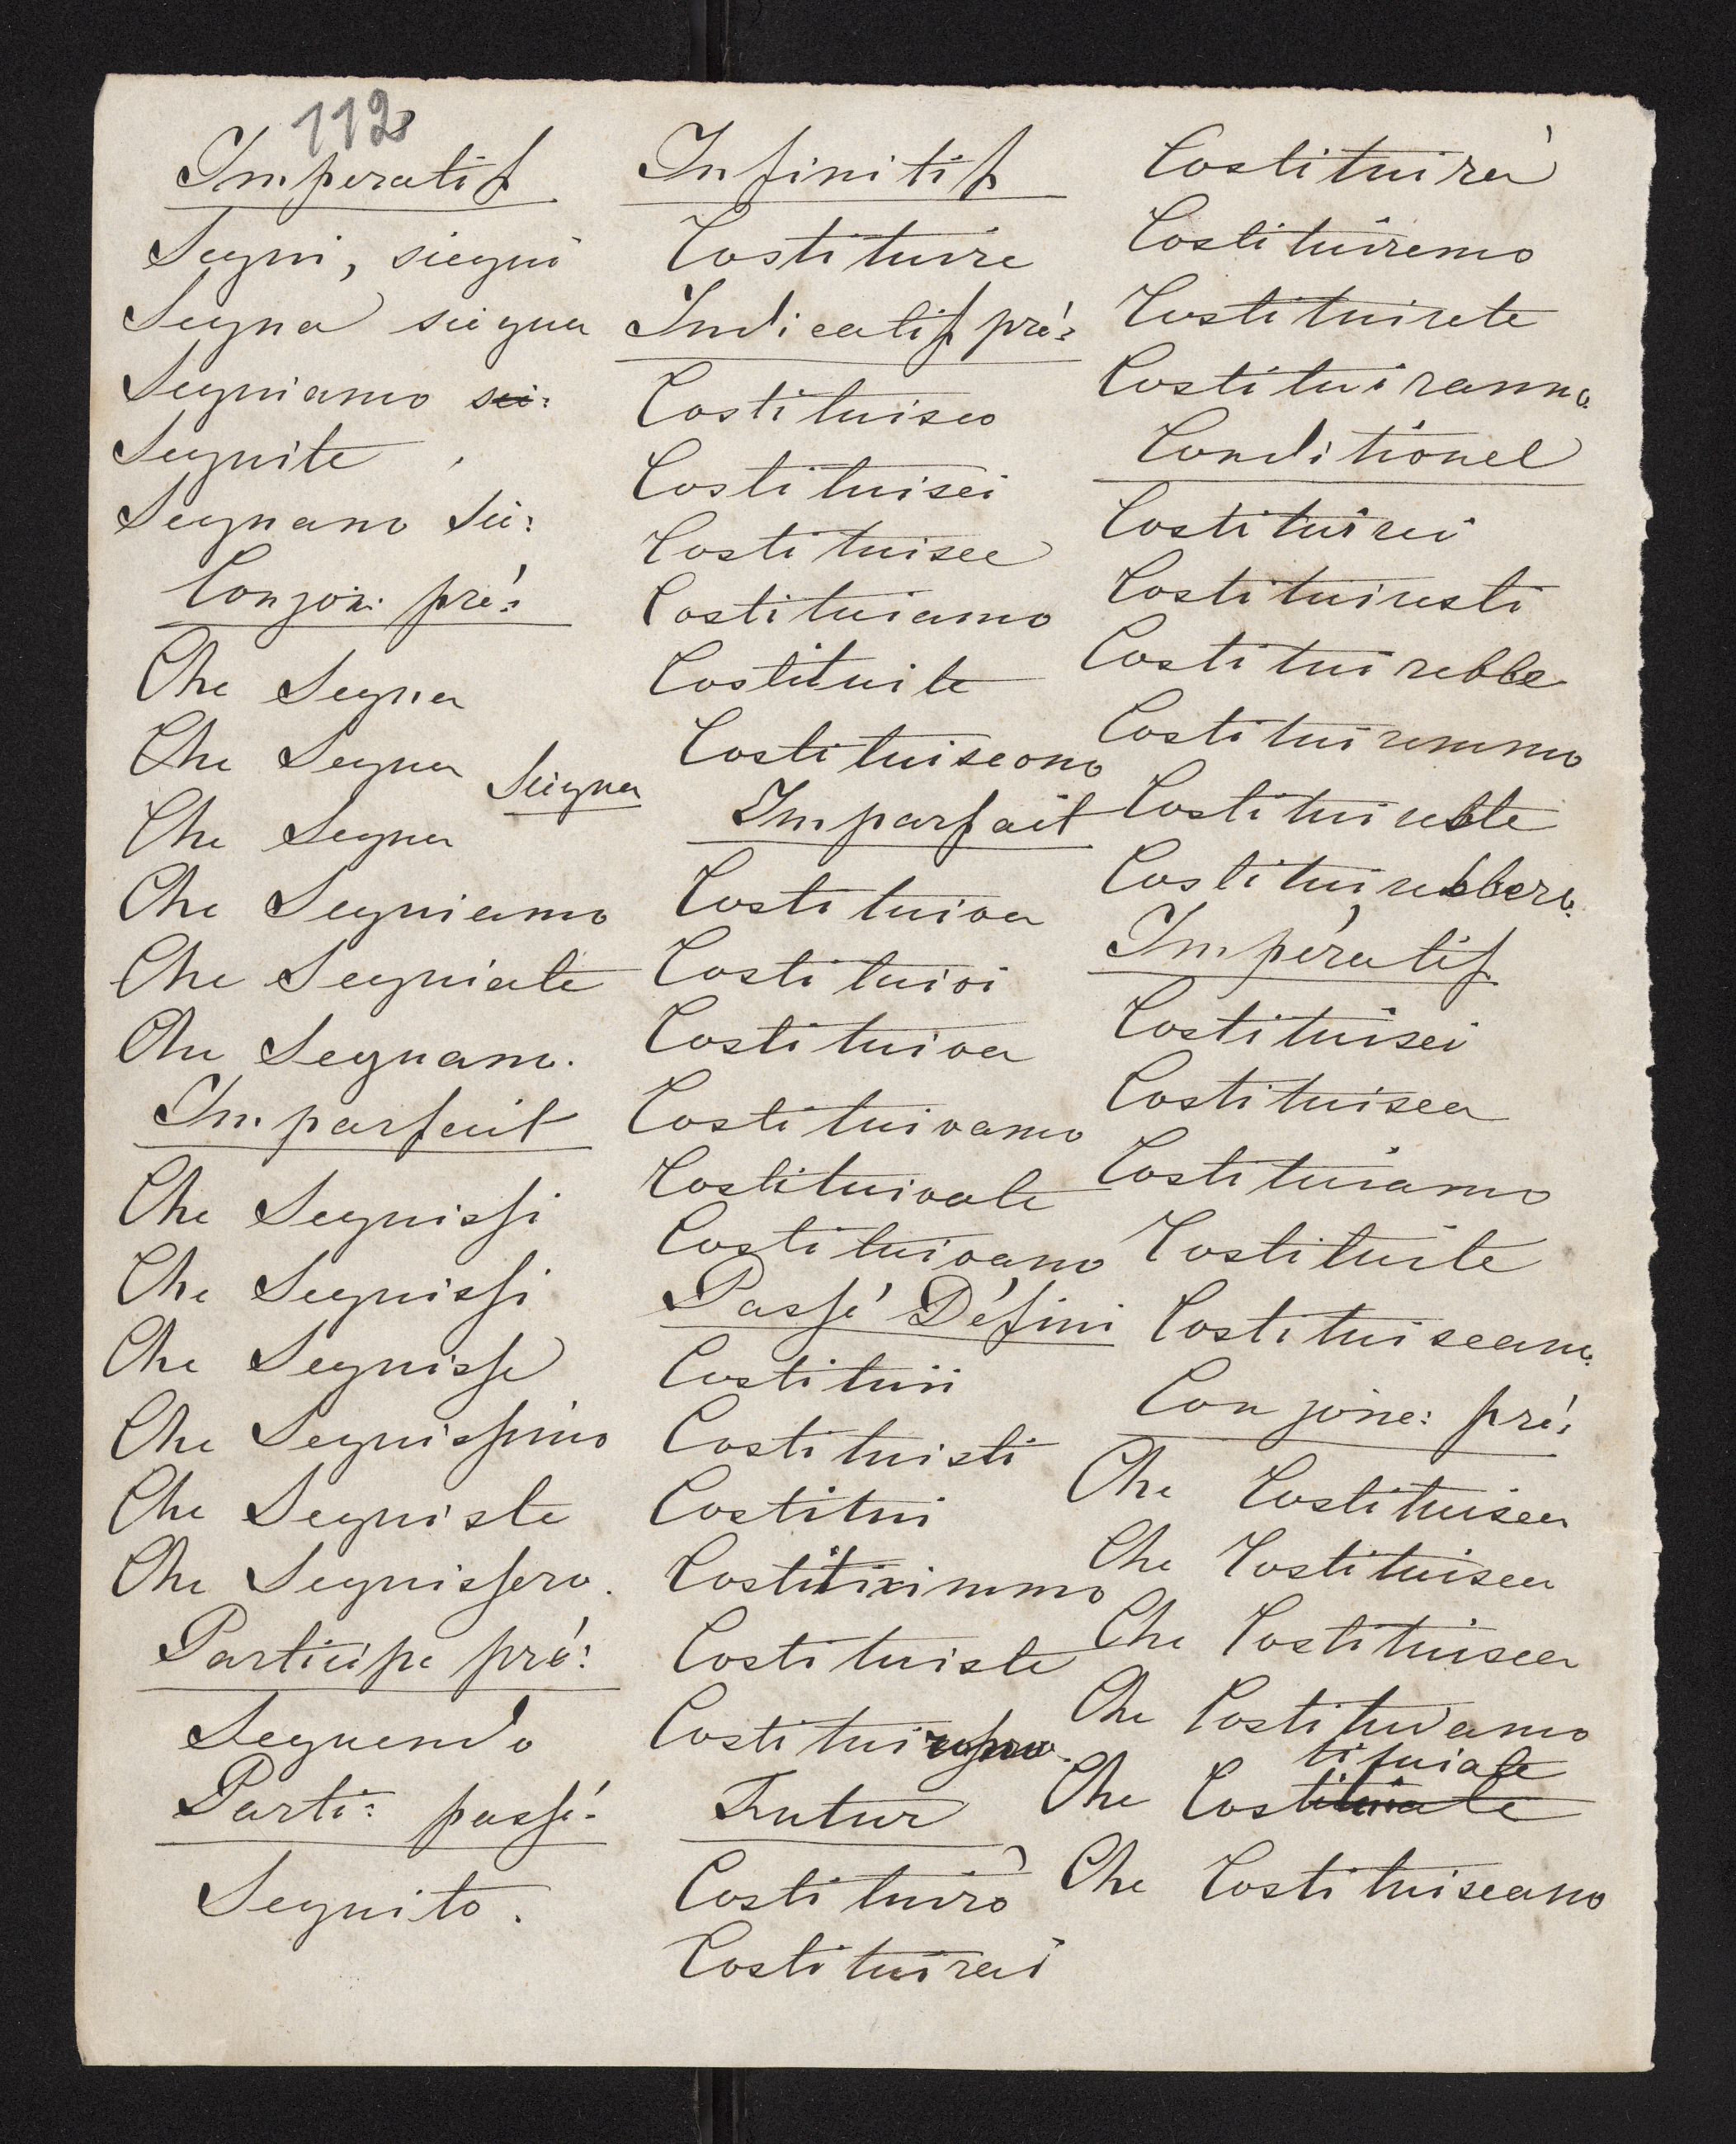 112
Imperatif
Segui, siegui
Segua siegua
Seguiamo sie:
Seguite,
Seguano sie:
Conjon: pré:
Che Segua
Che Segua Siegua
Che Segua
Che Seguiamo
Che Seguiate
Che Seguano.
Imparfait
Che Seguissi
Che Seguissi
Che Seguisse
Che Seguissimo
Che Seguiste
Che Seguissero.
Participe pré:
Seguendo
Parti: passé.
Seguito.
Infinitif
Costituire
Indicatif pré:
Costituisco
Costituisci
Costituisce
Costituiamo
Costituite
Costituiscono
Imparfait
Costituiva
Costituivi
Costituiva
Costituivamo
Costituivate
Costituivano
Passé Défini
Costituii
Costituisti
Costitui
Costituimmo
Costituiste
Futur
Costituirò
Costituirai
Costituirà
Costituiremo
Costituirete
Costituiranno.
Conditionel
Costituirei
Costituiresti
Costituirebbe
Costituiremmo
Costituireste
Costituirebbero.
Impératif
Costituisci
Costituisca
Costituiamo
Costituite
Costituiscano.
Conjonc: pré:
Che Costituisca
Che Costituisca
Che Costituisca
Che Costituiamo
tituiate
Che Costituiate
Che Costituiscano